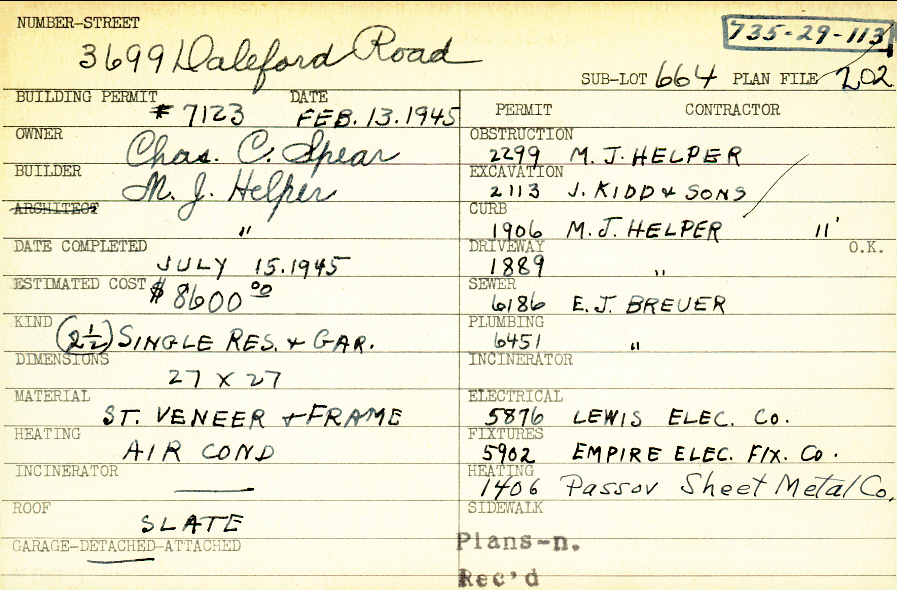 NUMBER-STREET
3699 Daleford Road
735-29-113
SUB-LOT 664 PLAN FILE 202
BUILDING PERMIT # 7123 DATE FEB. 13. 1945
OWNER Chas. C. Spear
BUILDER M. J. Helper
ARCHITECT "
DATE COMPLETED JULY 15. 1945
ESTIMATED COST $ 8600 00
KIND (2½) SINGLE RES. + GAR.
DIMENSIONS 27 X 27
MATERIAL ST. VENEER + FRAME
HEATING AIR COND
INCINERATOR
ROOF SLATE
GARAGE-DETACHED-ATTACHED
PERMIT CONTRACTOR
OBSTRUCTION 2299 M. J. HELPER
EXCAVATION 2113 J. KIDD + SONS
CURB 1906 M. J. HELPER 11'
DRIVEWAY 1889 " O.K.
SEWER 6186 E. J. BREUER
PLUMBING 6451 "
INCINERATOR
ELECTRICAL 5876 LEWIS ELEC. CO.
FIXTURES 5902 EMPIRE ELEC. FIX. CO.
HEATING 1406 Passov Sheet Metal Co.
SIDEWALK
Plans-n.
Rec'd